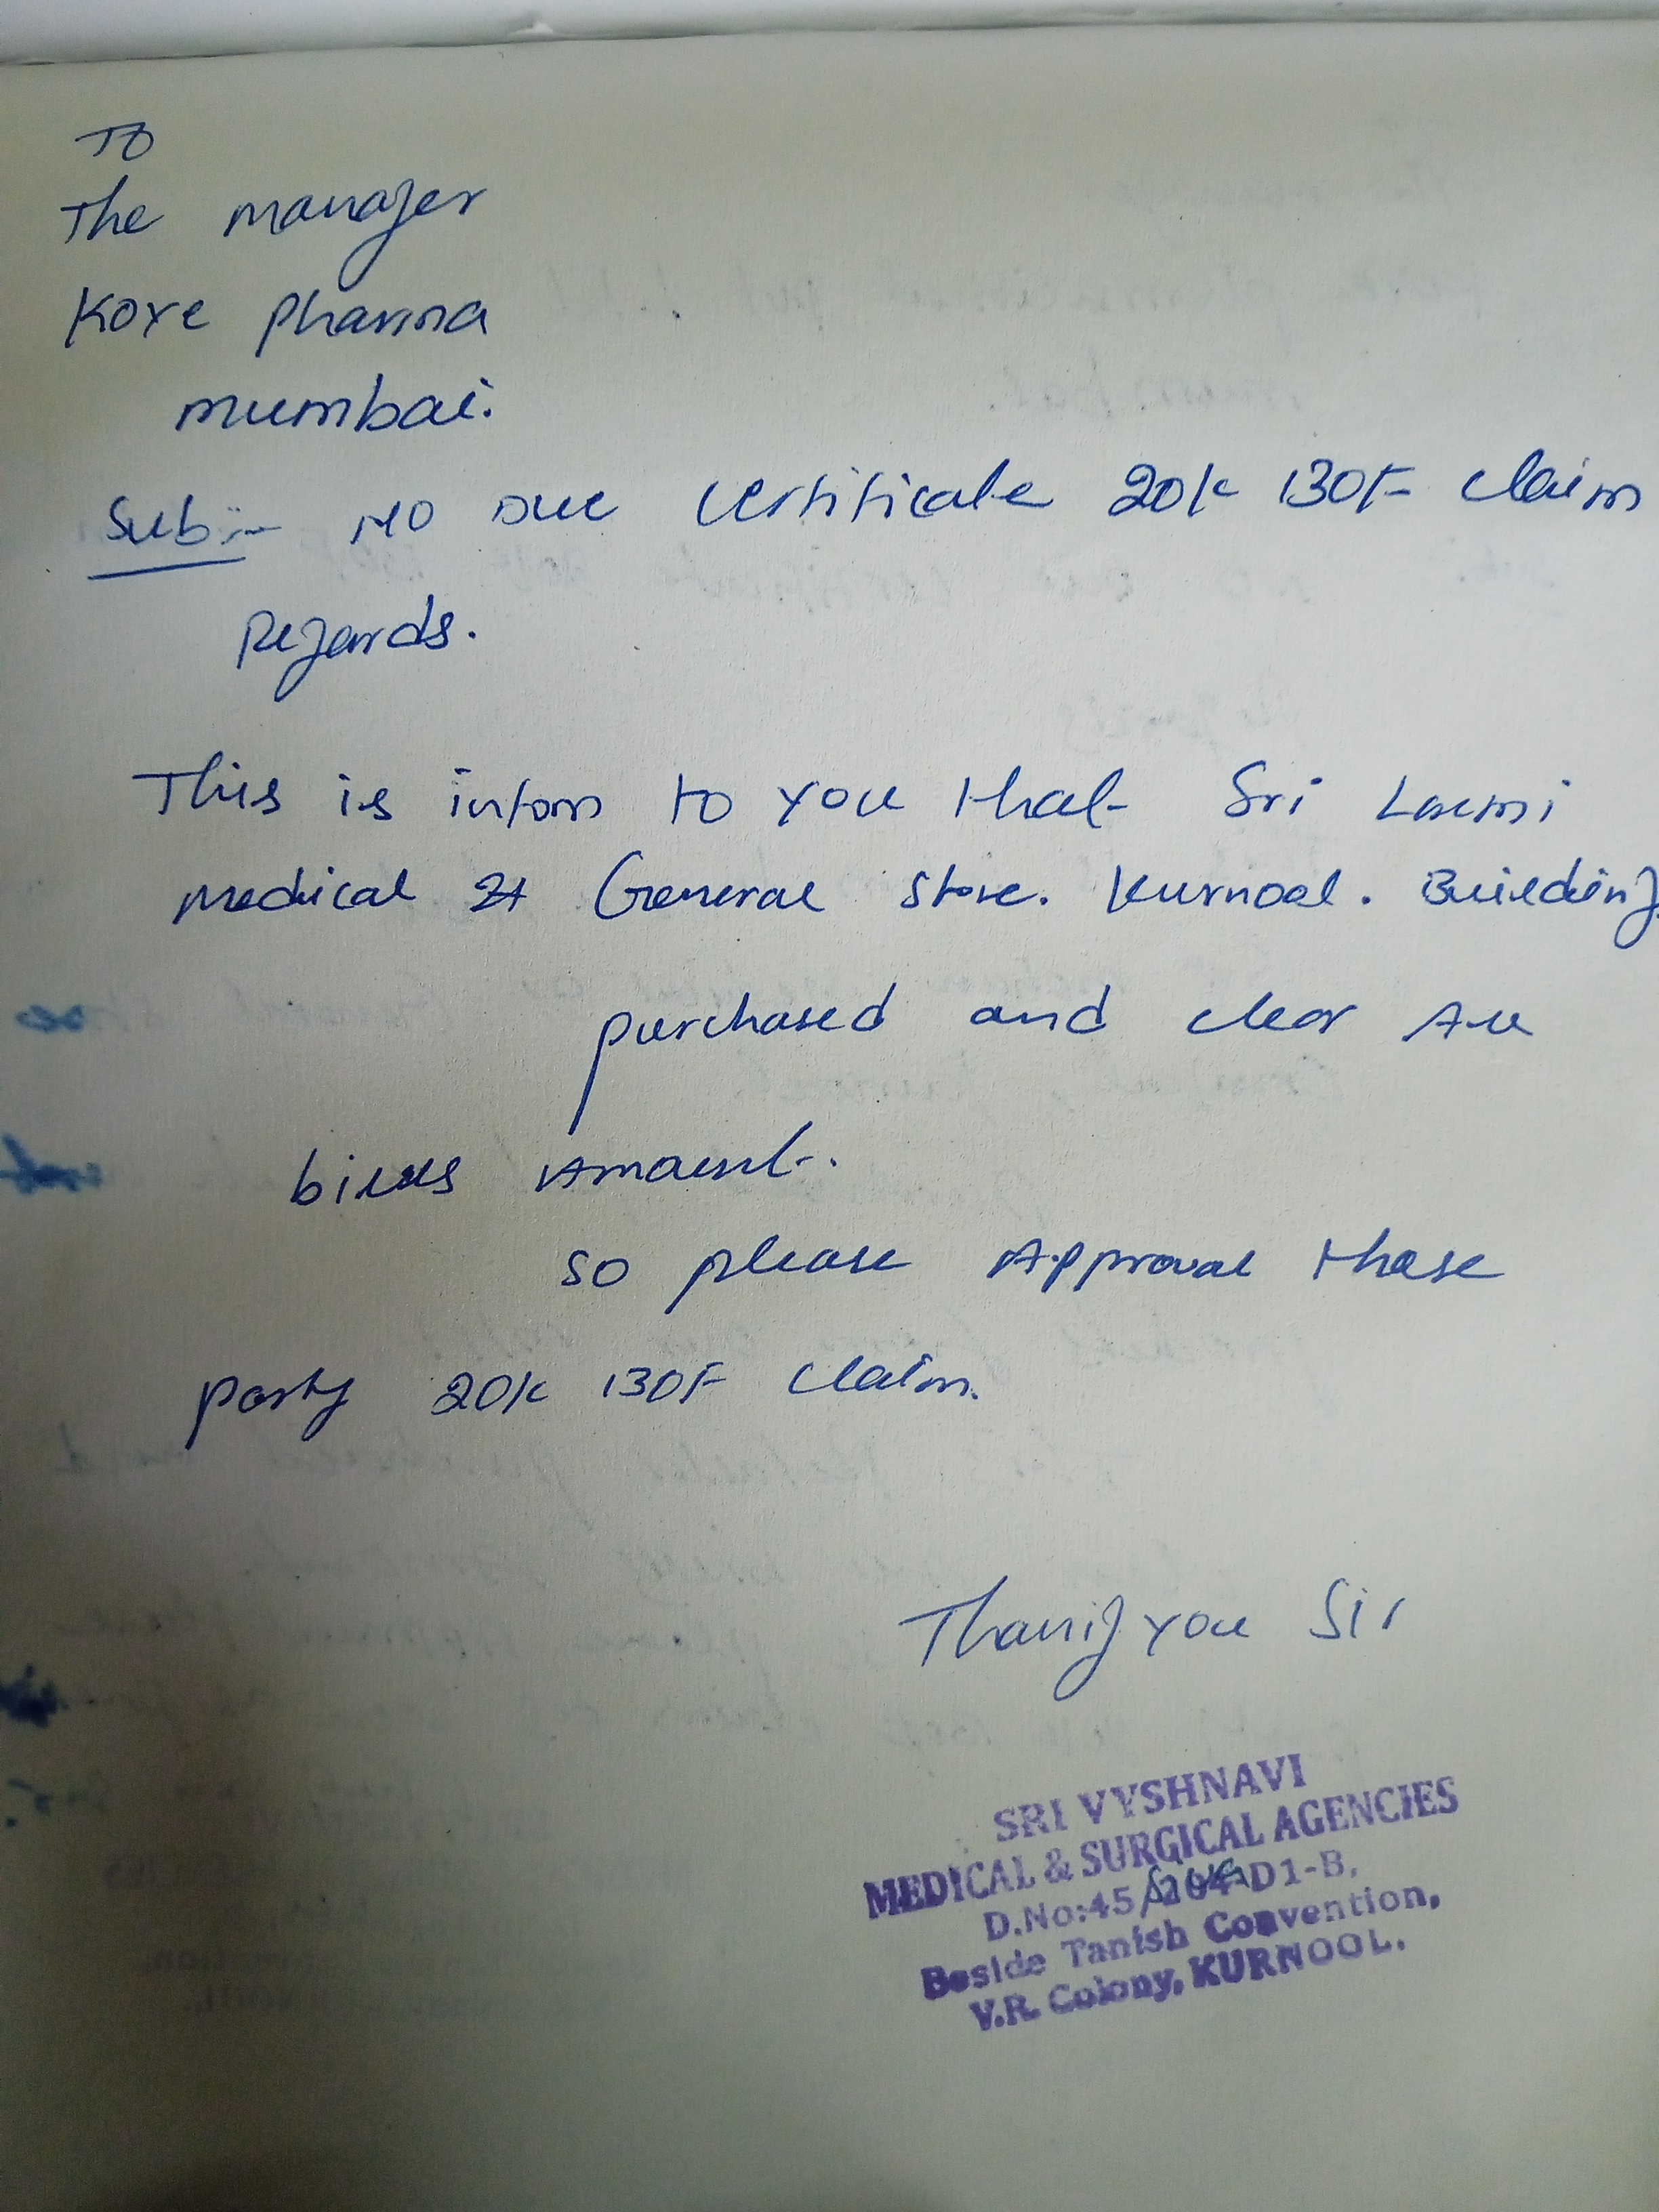 To
The manager
Kore pharma
mumbai.
Sub:- NO Due Certificate 20K BOF claim
Regards.
This is inform to you that Sri Laxmi
medical & General Store. Kurnool. Building
purchased and clear All
bills Amount.
so please Approval these
party 20K BOF Claim.
Thank you Sir
SRI VYSHNAVI
MEDICAL & SURGICAL AGENCIES
D.No:45/ D1-B,
Beside Tanish Convention,
V.R. Colony, KURNOOL.